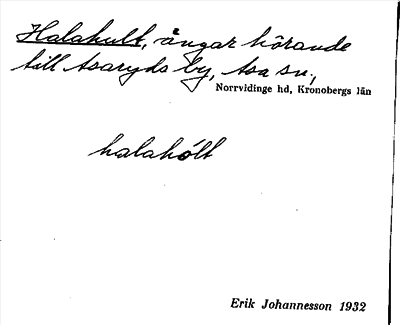 Halahult, ängar hörande
till Asaryds by, Asa sn,
Norrvidinge hd, Kronobergs län
halahólt
Erik Johannesson 1932